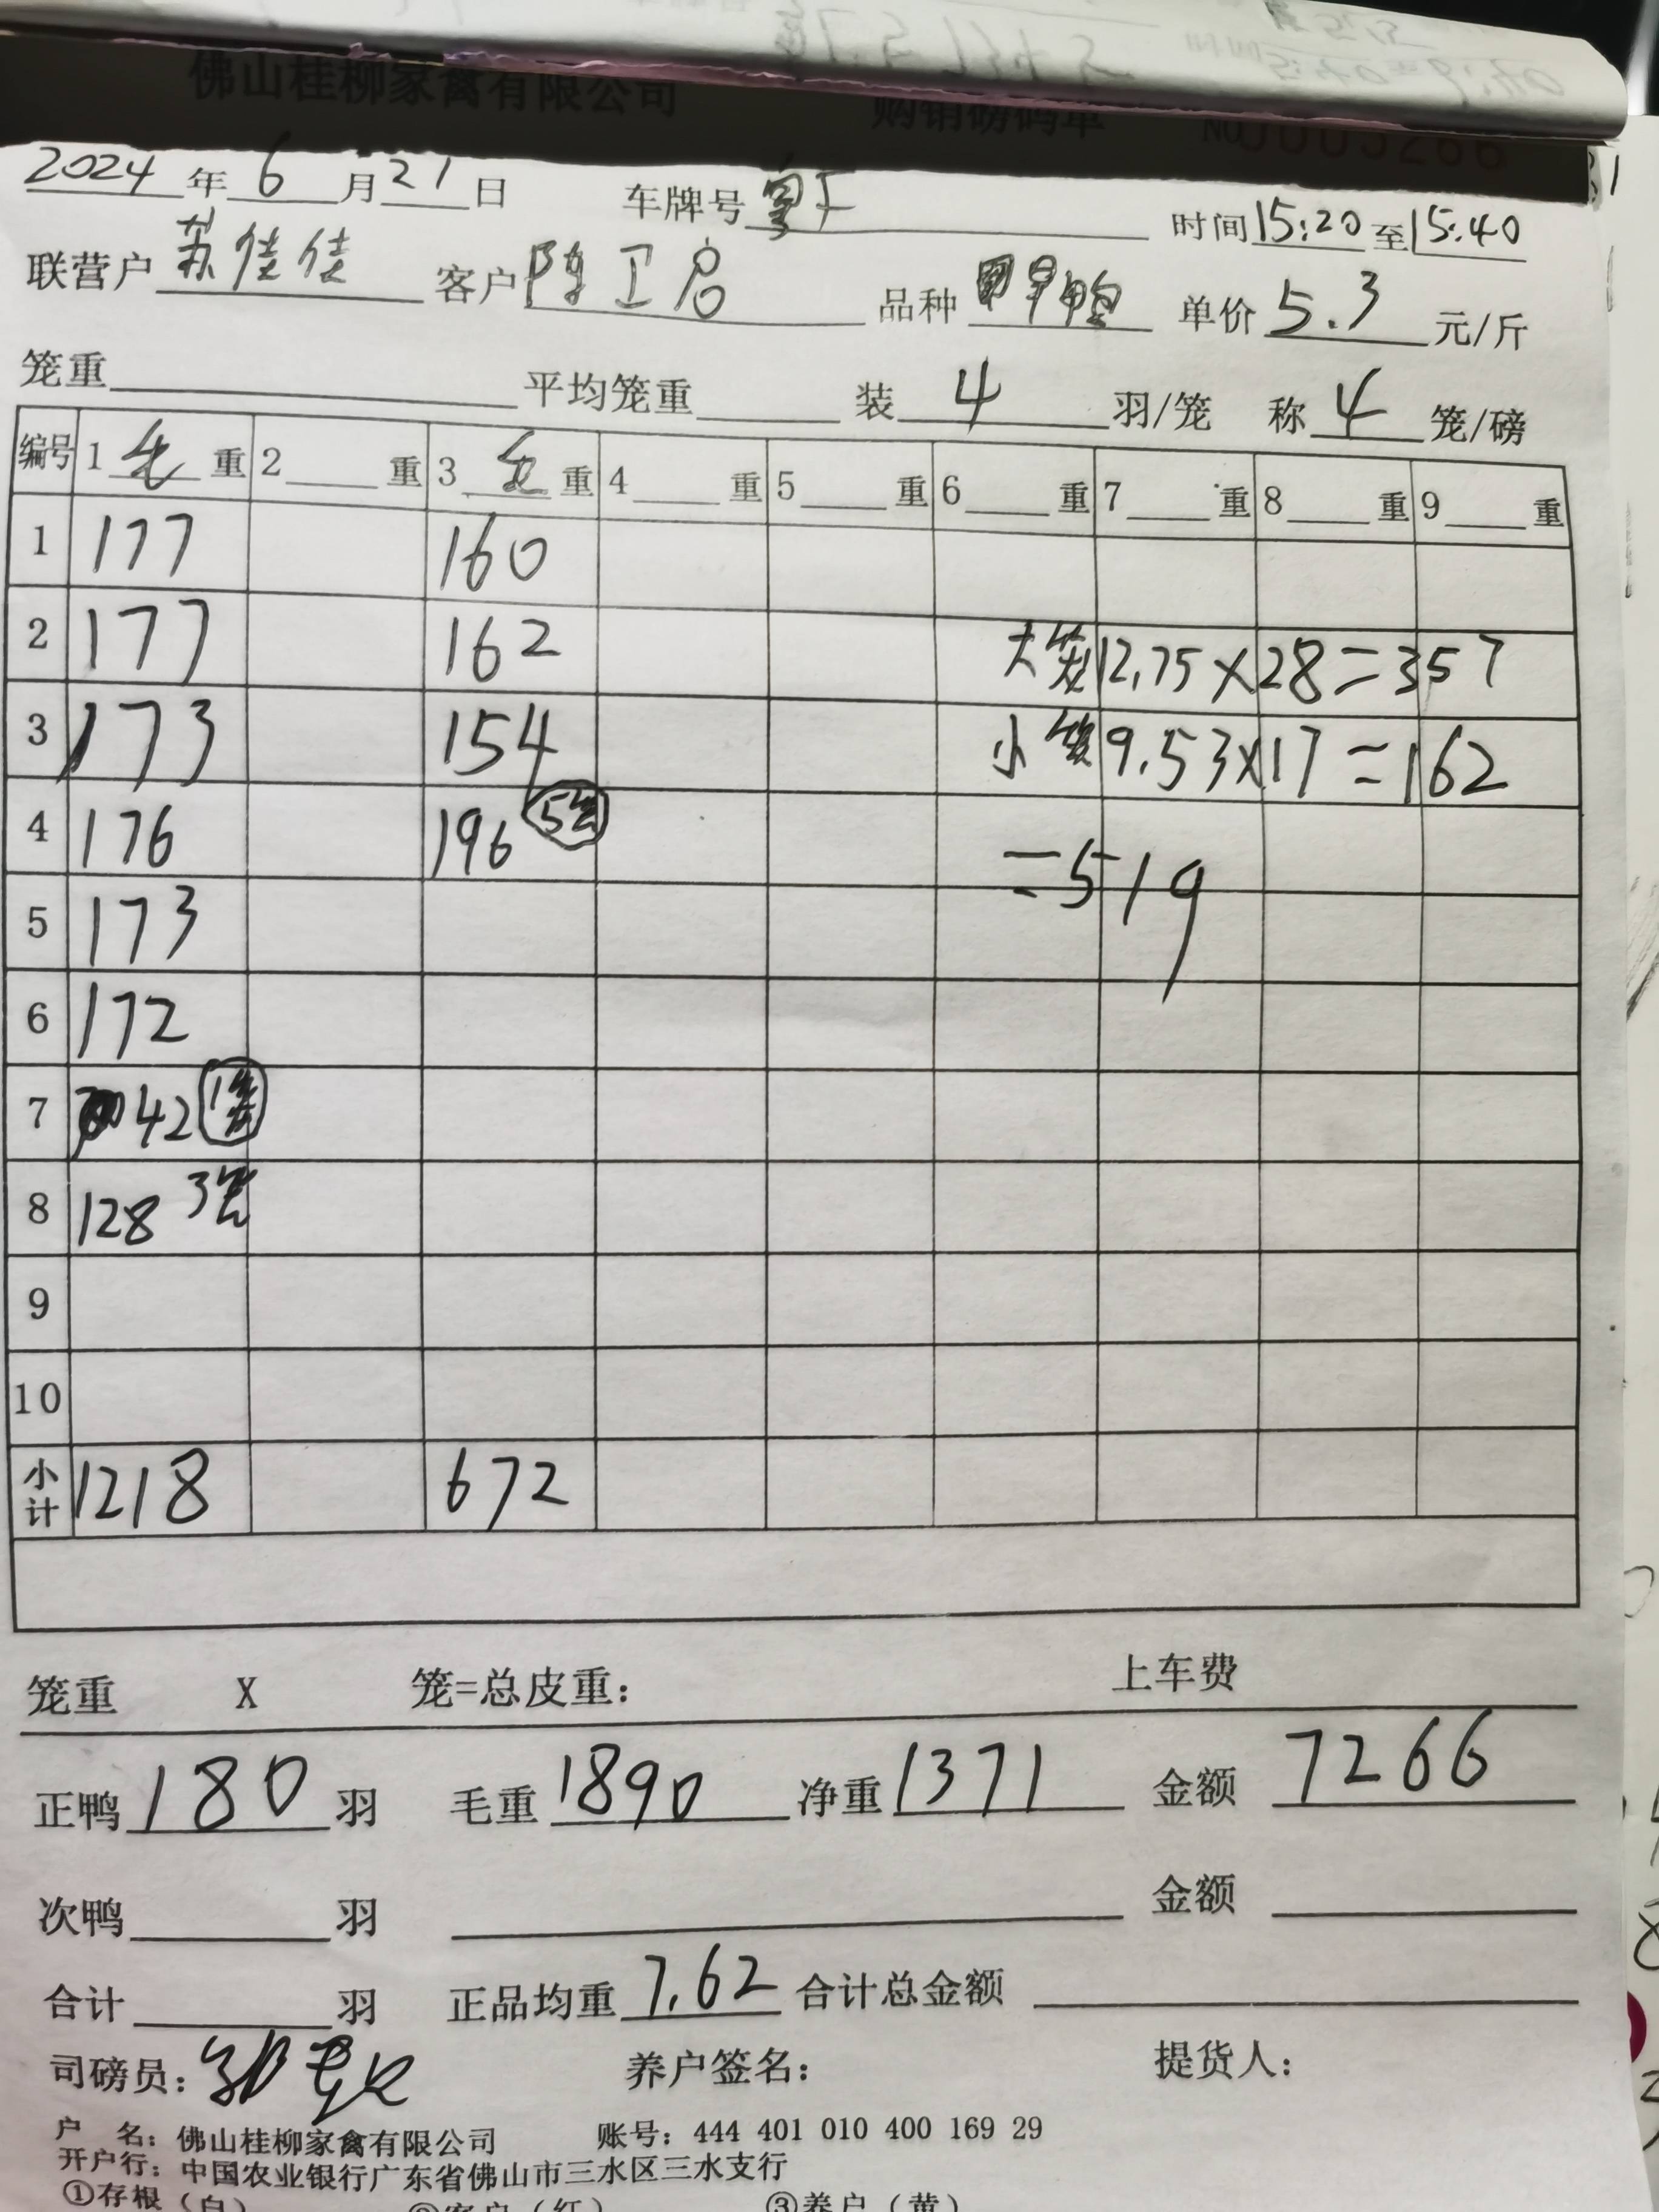 佛山桂柳家禽有限公司 购销磅码单 No 0005266
2024年6月21日 车牌号 时间15:20至15:40
联营户 苏佳佳 客户 陈卫启 品种 鸭 单价5.3元/斤
笼重 平均笼重 装4羽/笼 称4笼/磅
编号 1毛重 2重 3毛重 4重 5重 6重 7重 8重 9重
1 177 160
2 177 162 大笼12.75×28=357
3 173 154 小笼9.53×17=162
4 176 196 5笼 =519
5 173
6 172
7 42 1笼
8 128 3笼
9
10
小计 1218 672
笼重 X 笼=总皮重： 上车费
正鸭180羽 毛重1890 净重1371 金额7266
次鸭 羽 金额
合计 羽 正品均重7.62 合计总金额
司磅员： 养户签名： 提货人：
户 名：佛山桂柳家禽有限公司 账号：444 401 010 400 169 29
开户行：中国农业银行广东省佛山市三水区三水支行
①存根（白） ②客户（红） ③养户（黄）